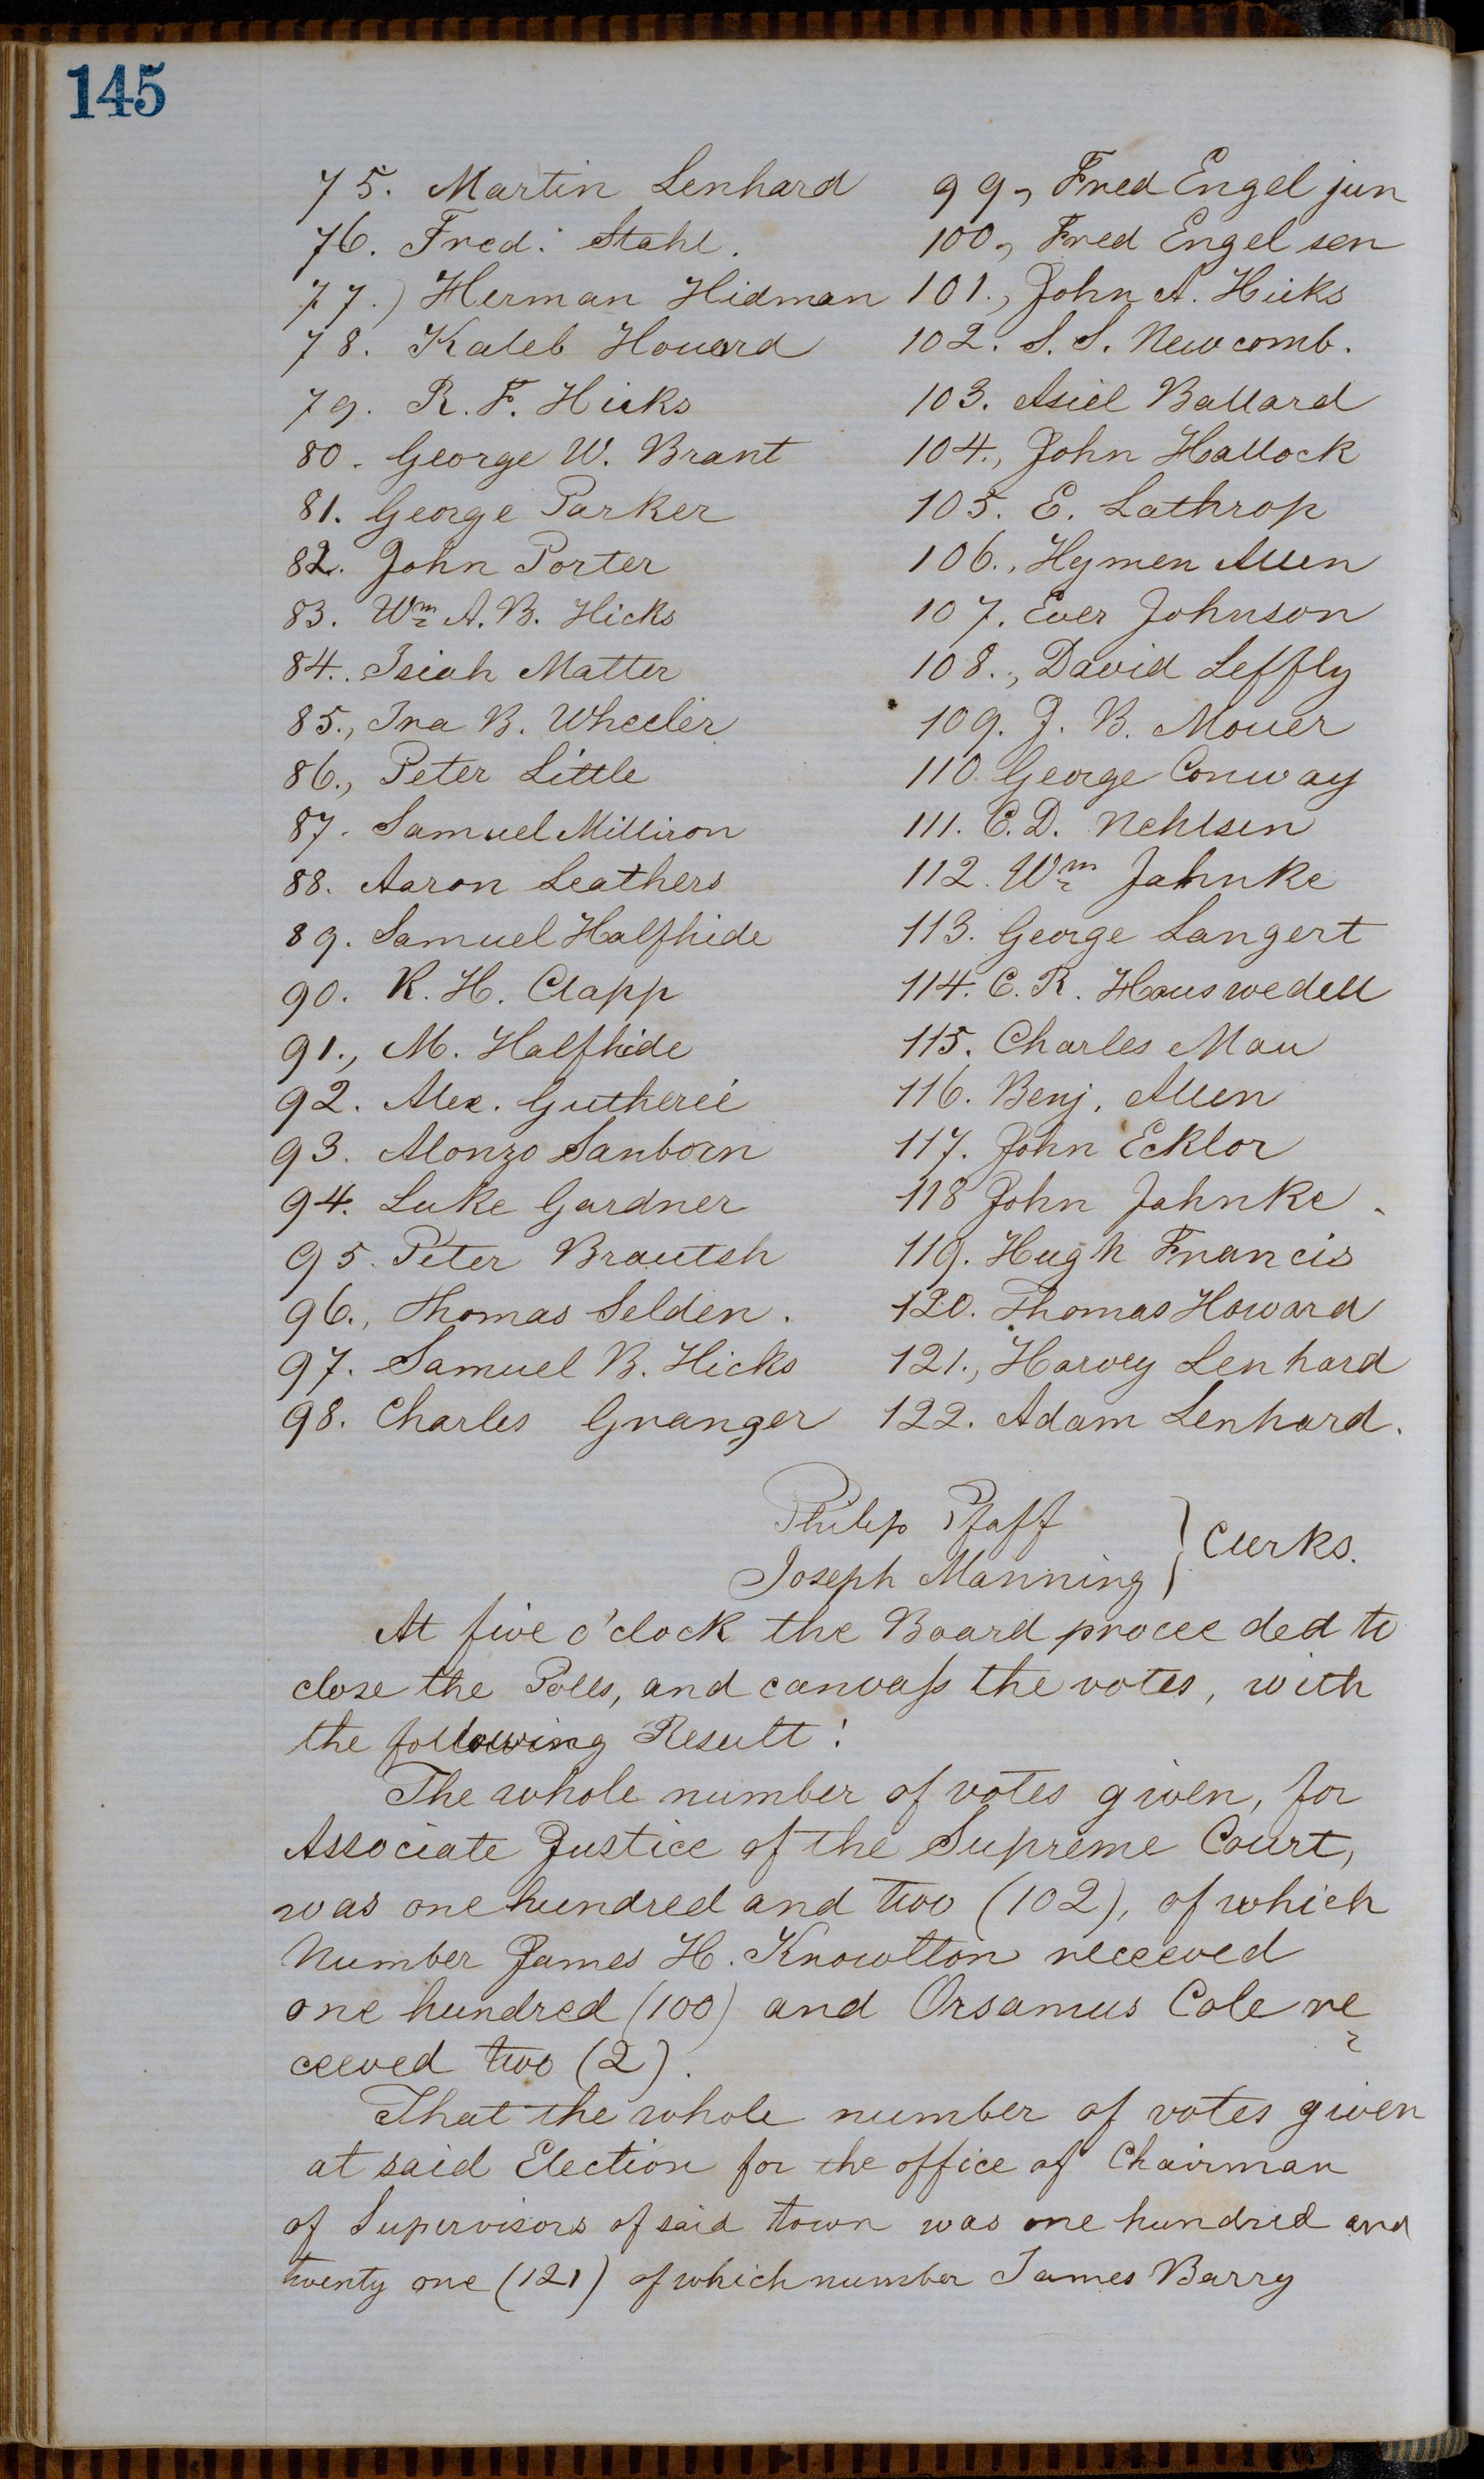 145
75. Martin Lenhard
76. Fred. Stahl.
77.) Herman Hidman
78. Kaleb Houard
79. R. F. Hicks
80. George W. Brant
81. George Parker
82. John Porter
83. Wm A. B. Hicks
84. Isiah Matter
85., Ira B. Wheeler
86., Peter Little
87. Samuel Milliron
88. Aaron Leathers
89. Samuel Halfhide
90. R. H. Clapp
91., M. Halfhide
92. Alex. Gutherié
93. Alonzo Sanborn
94. Luke Gardner
95. Peter Brautsh
96., Thomas Selden.
97. Samuel B. Hicks
98. Charles Granger
99., Fred Engel jun
100., Fred Engel sen
101., John A. Hicks
102. S. S. Newcomb.
103. Asiel Ballard
104., John Hallock
105. E. Lathrop
106., Hymen Allen
107. Ever Johnson
108., David Leffly
109. J. B. Mouer
110 George Conway
111. C. D. Nehlsen
112. Wm Jahnke
113. George Langert
114. C. R. Hauswedell
115. Charles Mau
116. Benj. Allen
117. John Ecklor
118 John Jahnke.
119. Hugh Francis
120. Thomas Howard
121., Harvey Lenhard
122. Adam Lenhard.
Philip Pfaff
Joseph Manning } Clerks.
At five o'clock the Board proceeded to
close the Polls, and canvass the votes, with
the following Result:
The whole number of votes given, for
Associate Justice of the Supreme Court,
was one hundred and two (102), of which
Number James H. Knowlton receeved
one hundred (100) and Orsamus Cole re
ceeved two (2).
That the whole number of votes given
at said Election for the office of Chairman
of Supervisors of said town was one hundred and
twenty one (121) of which number James Barry